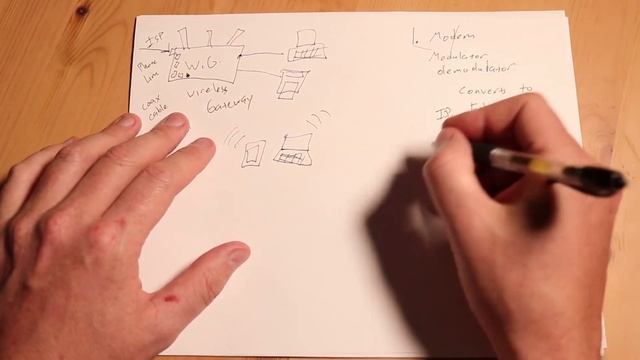 ISP
Phone
Line
coax
cable
W.G.
wireless
Gateway
1. Modem
Modulator
demodulator
Converts to
ISP